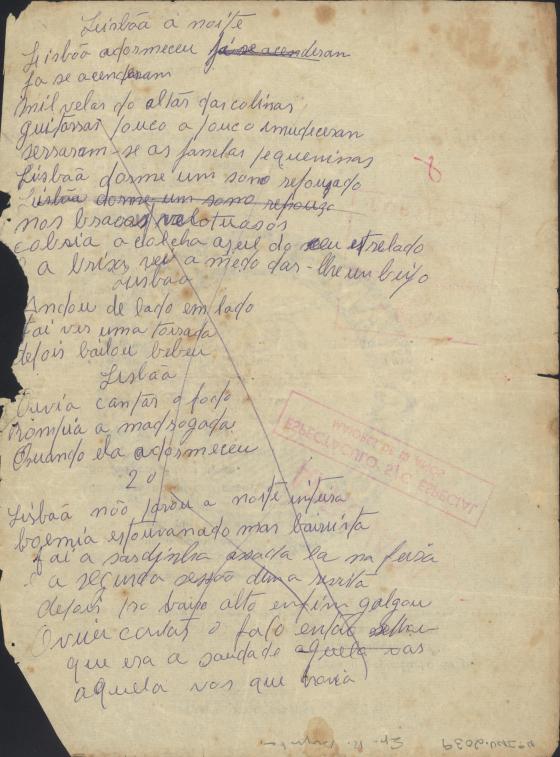 Lisbãa á noite
Lisbãa adormeceu já se acenderan
Ja se acenderam
mil velas do altar das colinas
guitarras pouco a pouco imudeceran
serraram-se as janelas pequeninas
Lisbãa dorme um sono repouzado
Lisbãa dorme um sono repouza
nos bracos
cobria a colcha azul do ceu estrelado
a briza veu a medo das-lhe um beijo
Lisbãa
Andou de lado em lado
Fai ver uma toirada
depois bailou bebeu
Lisbãa
Ouvia cantar o fado
Rompia a madrogada
Quando ela adormeceu
2º
Lisbãa não parou a noite inteira
boemia estouvanada mas bairista
Fai a sardinha assada la na feira
a segunda sessão duma revista
depois pro bairo alto enfim galgou
Ouvir cantar o fado então
que era a saudade aquela vos
aquela vos que havia
MAIORES DE 12 ANOS
ESPECTACULO, S/C. ESPECIAL
Nº INV. 2039